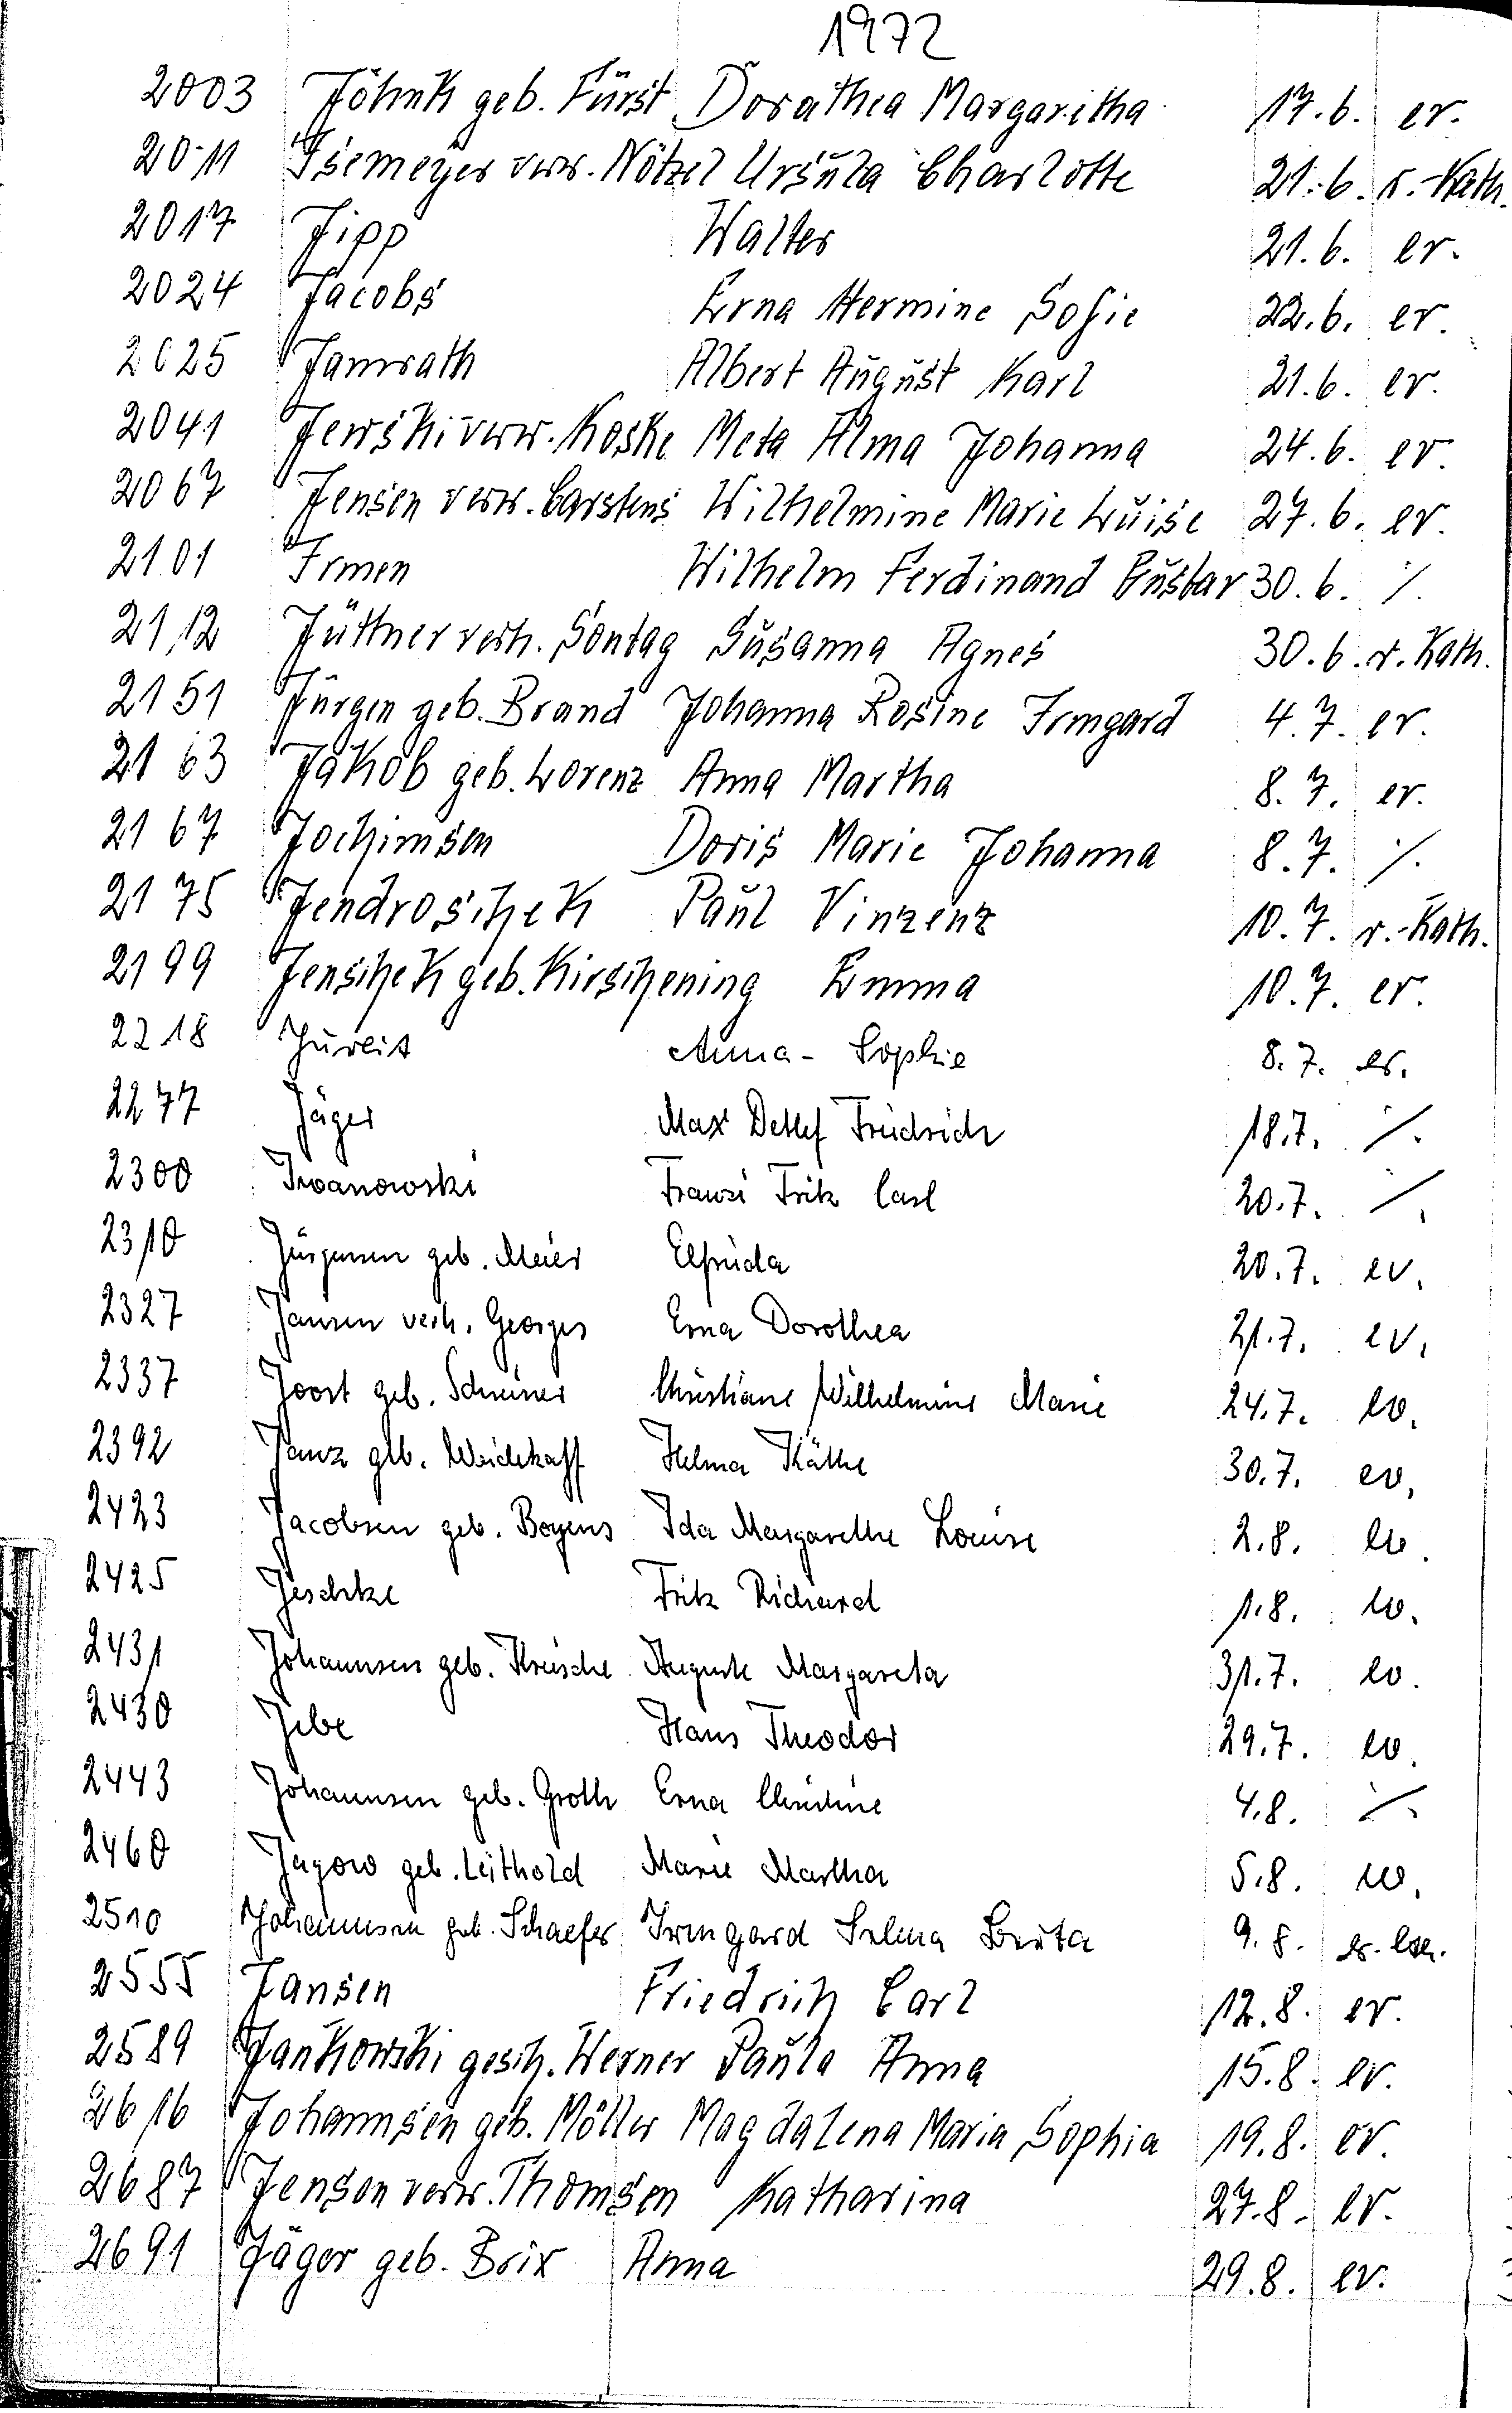 1972
2003 Jöhnk geb. Fürst Dorathea Margaritha 17.6. ev.
2011 Isemeyer verw. Nötzel Ursula Charlotte 21.6. r.-Kath.
2017 Jipp Walter 21.6. ev.
2024 Jacobs Erna Hermine Sofie 22.6. ev.
2025 Jamrath Albert August Karl 21.6. ev.
2041 Jewski verw. Koske Meta Alma Johanna 24.6. ev.
2067 Jensen verw. Carstens Wilhelmine Marie Luise 27.6. ev.
2101 Irmen Wilhelm Ferdinand Gustav 30.6. %
2112 Jüttner verh. Sontag Susanna Agnes 30.6. r. Kath.
2151 Jürgen geb. Brand Johanna Rosine Irmgard 4.7. ev.
2163 Jakob geb. Lorenz Anna Martha 8.7. ev.
2167 Jochimsen Doris Marie Johanna 8.7. %
2175 Jendroschek Paul Vinzenz 10.7. r.-Kath.
2199 Jenschek geb. Kirschening Emma 10.7. ev.
2218 Jureit Anna-Sophie 8.7. ev.
2277 Jäger Max Detlef Friedrich 18.7. %
2300 Iwanowski Franz Fritz Carl 20.7. %
2310 Jürgensen geb. Meier Elfrieda 20.7. ev.
2327 Jansen verh. Georges Erna Dorothea 21.7. ev.
2337 Joost geb. Schreiner Christiane Wilhelmine Marie 24.7. ev.
2392 Janz geb. Helma Käthe 30.7. ev.
2423 Jacobsen geb. Boyens Ida Margarethe Louise 2.8. ev.
2425 Jeschke Fritz Richard 1.8. ev.
2431 Johannsen geb. Auguste Margareta 31.7. ev.
2430 Jebe Hans Theodor 29.7. ev.
2443 Johannsen geb. Groth Erna Christine 4.8. %
2460 Jagow geb. Leithold Marie Martha 5.8. ev.
2510 Johannsen geb. Schaefer Irmgard Selma Berta 9.8. ev.
2555 Jansen Friedrich Carl 12.8. ev.
2589 Jankowski gesch. Werner Paula Anna 15.8. ev.
2616 Johannsen geb. Möller Magdalena Maria Sophia 19.8. ev.
2687 Jensen verw. Thomsen Katharina 27.8. ev.
2691 Jäger geb. Brix Anna 29.8. ev.